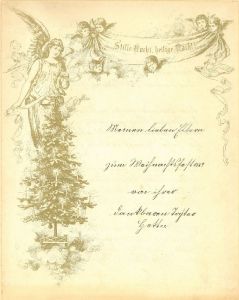 Stille Nacht, heilige Nacht!
Meinen lieben Eltern
zum Weihnachtsfeste
von ihrer
dankbaren Tochter